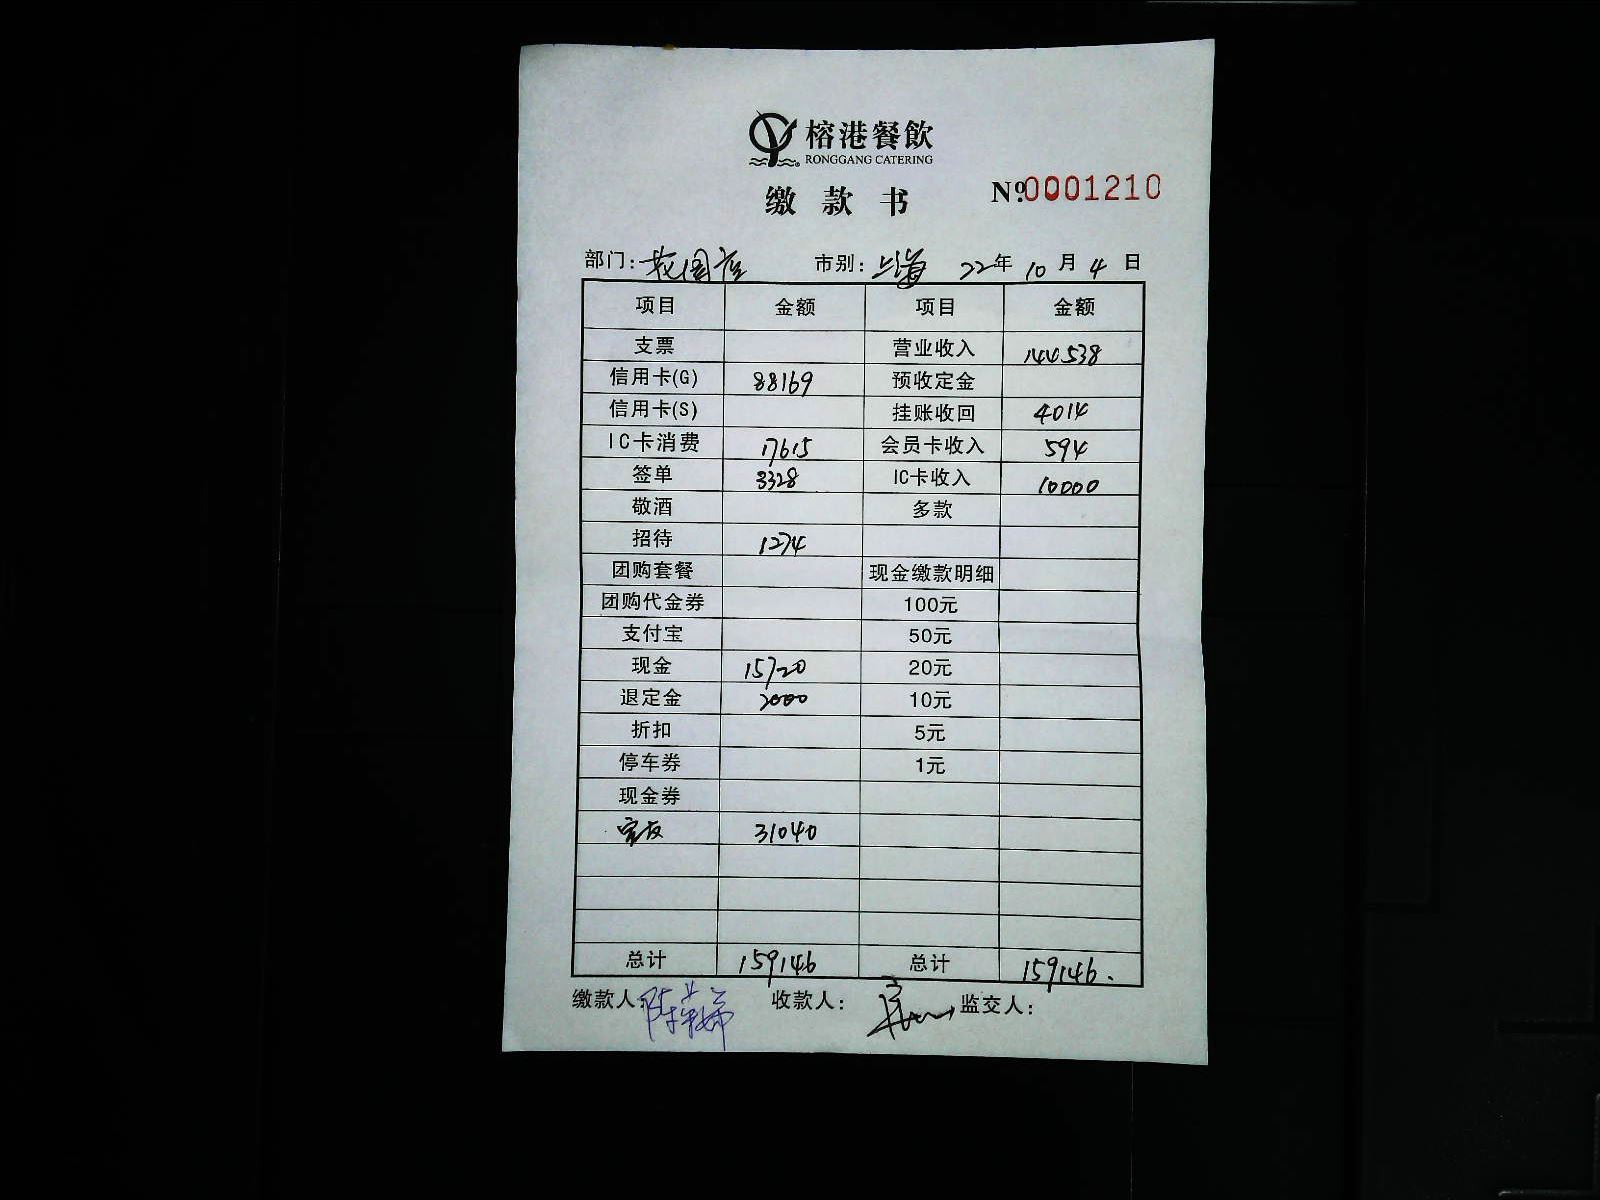 榕港餐飲
RONGGANG CATERING
缴款书 Nº0001210
部门: 花园店 市别: 上海 22年10月4日
项目 金额 项目 金额
支票 营业收入 144538
信用卡(G) 88169 预收定金
信用卡(S) 挂账收回 4014
IC卡消费 17615 会员卡收入 594
签单 3328 IC卡收入 10000
敬酒 多款
招待 1274
团购套餐 现金缴款明细
团购代金券 100元
支付宝 50元
现金 15720 20元
退定金 2000 10元
折扣 5元
停车券 1元
现金券
31040
总计 159146 总计 159146.
缴款人: 收款人: 监交人: